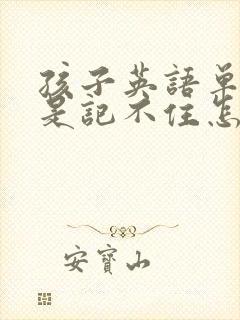 孩子英語單
是記不住怎
安寶山